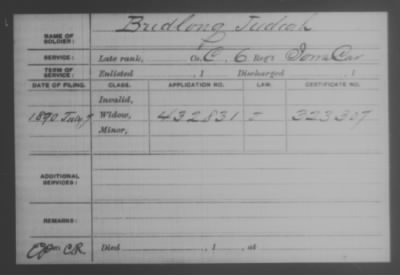 NAME OF SOLDIER: Bridlong Judiah
SERVICE: Late rank, Co. C, 6 Reg't Iowa Cav
TERM OF SERVICE: Enlisted , 1 Discharged , 1
DATE OF FILING. CLASS. APPLICATION NO. LAW. CERTIFICATE NO.
Invalid,
1890 July 7 Widow, 432831 I 323307
Minor,
ADDITIONAL SERVICES:
REMARKS:
C.R. Died , 1 , at